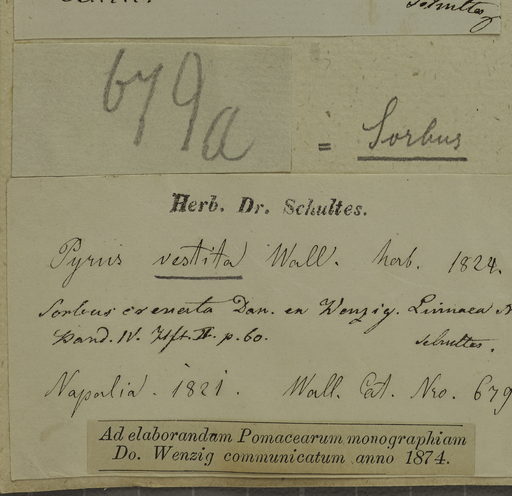 Schultes
679a
= Sorbus
Herb. Dr. Schultes.
Pyrus vestita Wall. herb. 1824.
Sorbus crenata Don. en Wenzig. Linnaea
Band. IV. Hft. II. p. 60. Schultes.
Napalia. 1821. Wall. Cat. Nro. 679
Ad elaborandum Pomacearum monographiam
Do. Wenzig communicatum anno 1874.